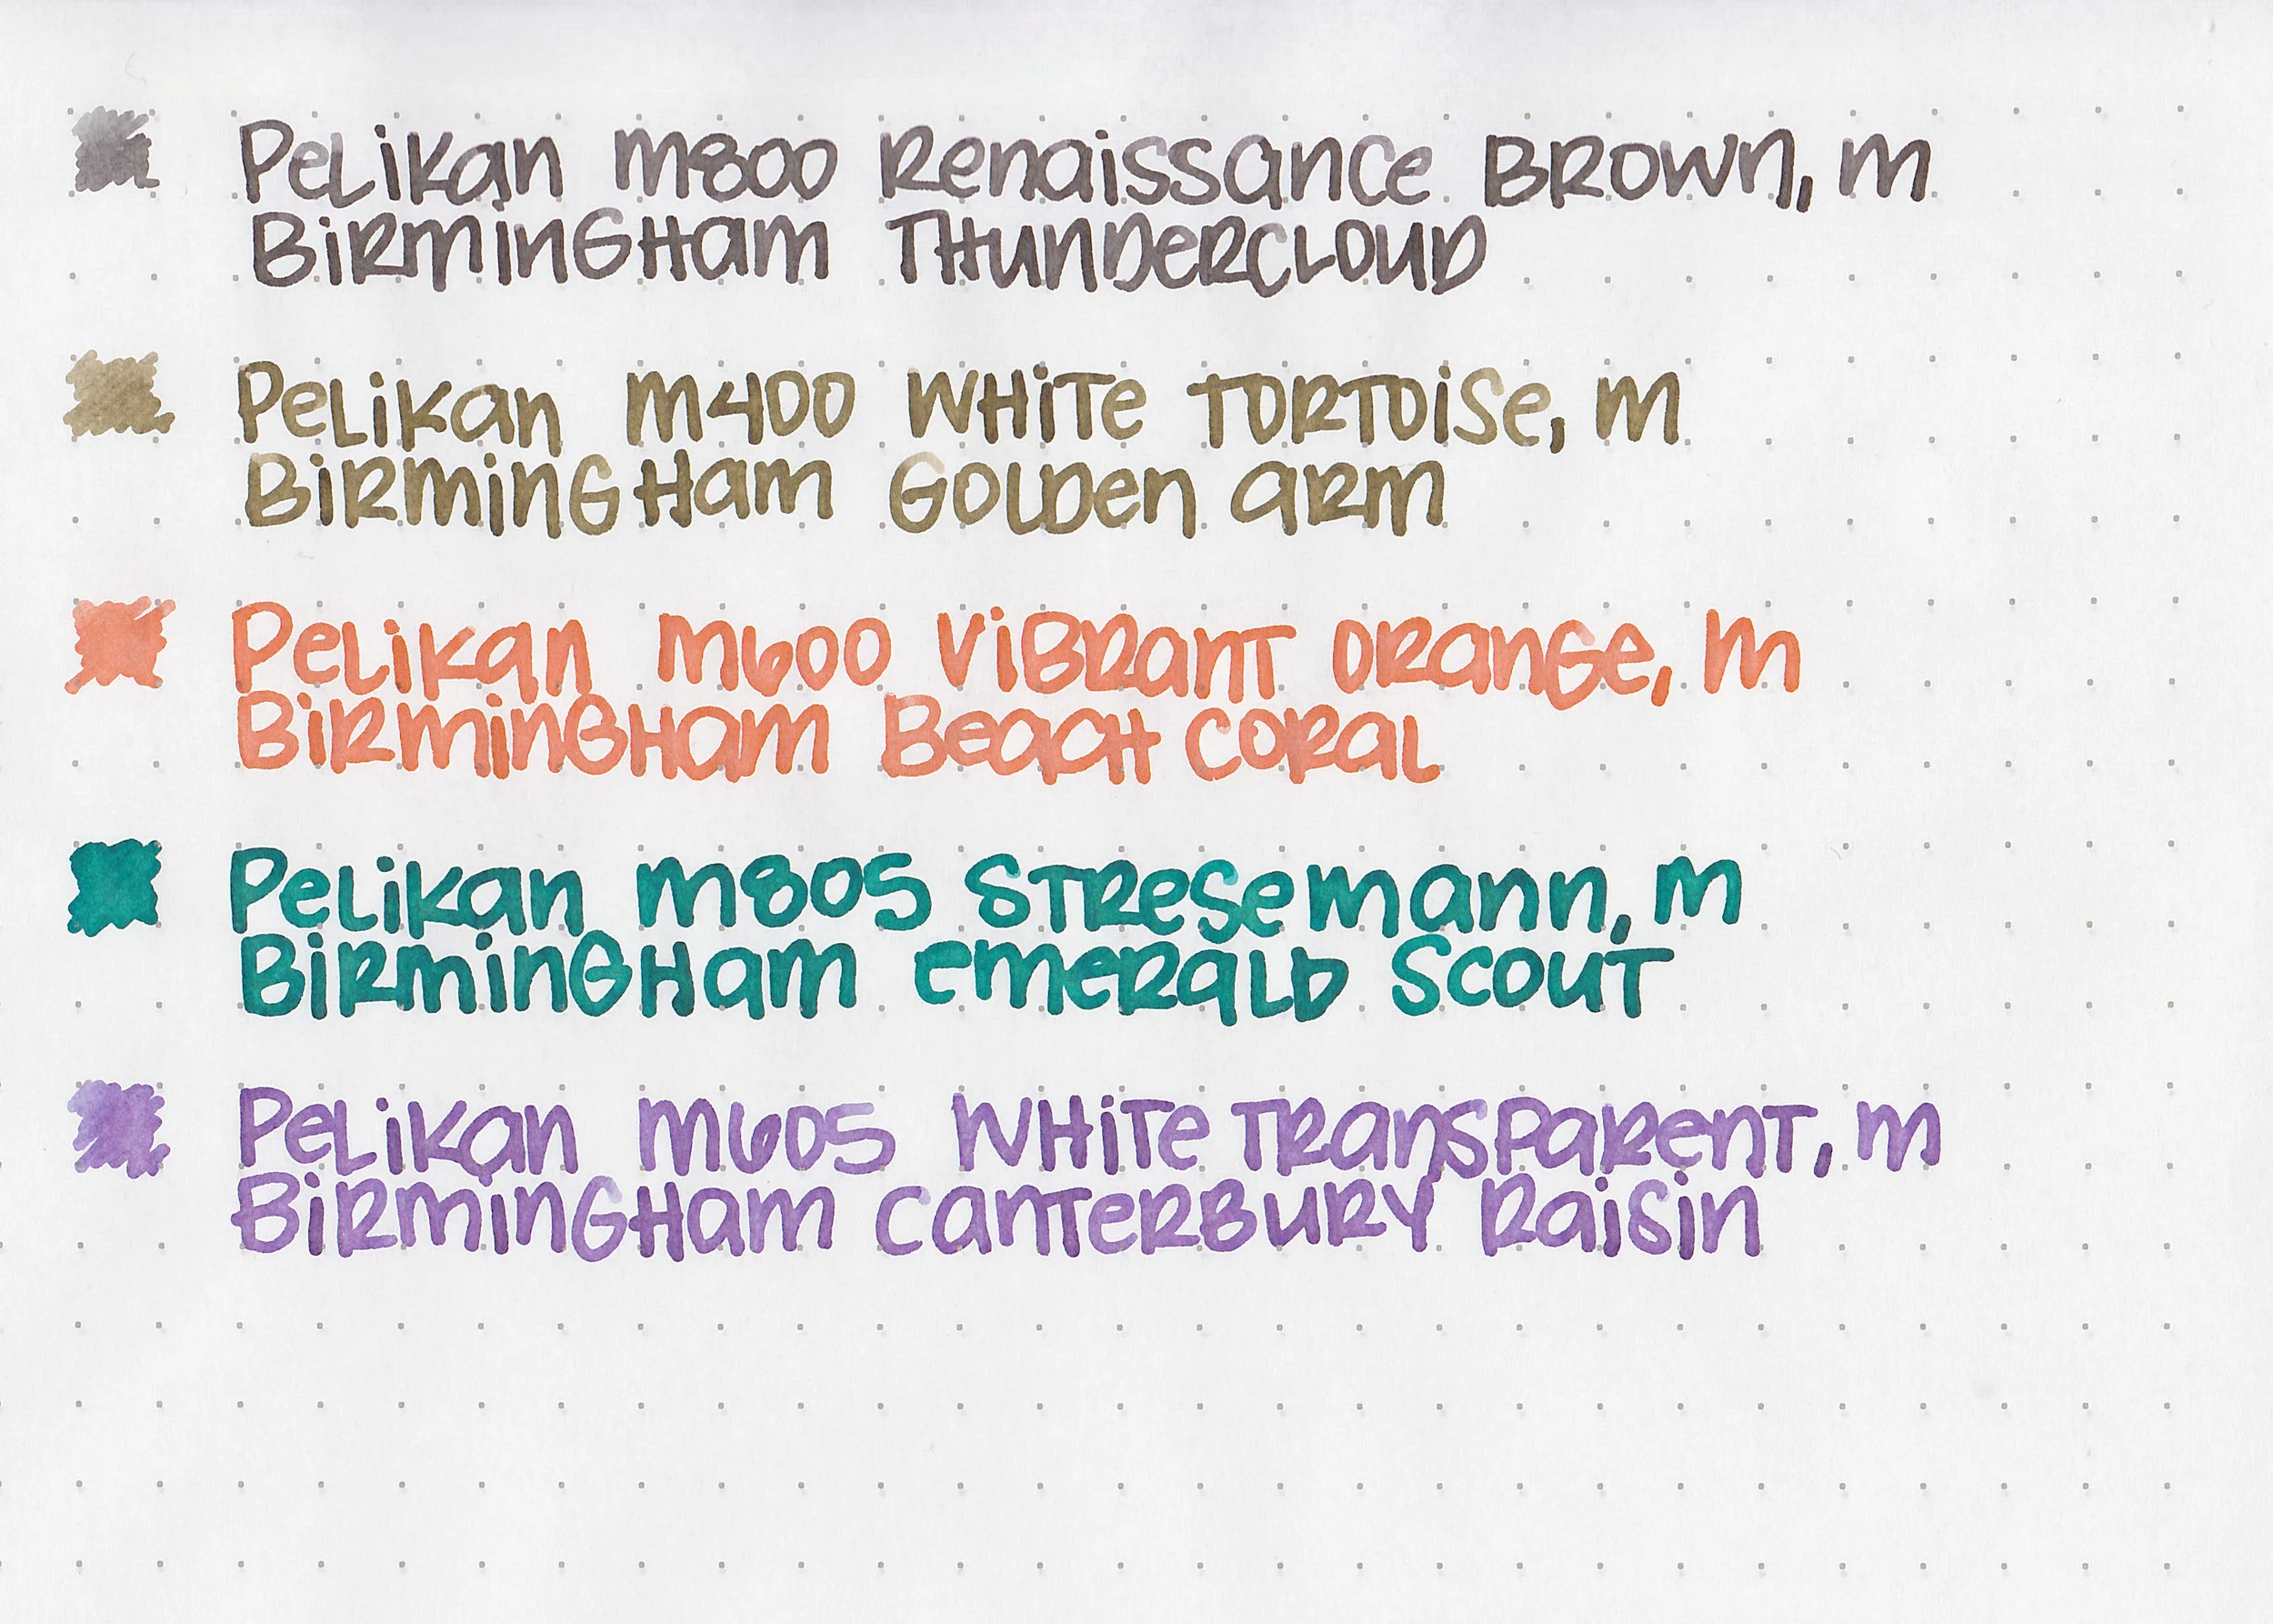 Pelikan M800 Renaissance Brown, M
Birmingham Thundercloud
Pelikan M400 White Tortoise, M
Birmingham Golden Arm
Pelikan M600 Vibrant Orange, M
Birmingham Beach Coral
Pelikan M805 Stresemann, M
Birmingham Emerald Scout
Pelikan M605 White Transparent, M
Birmingham Canterbury Raisin